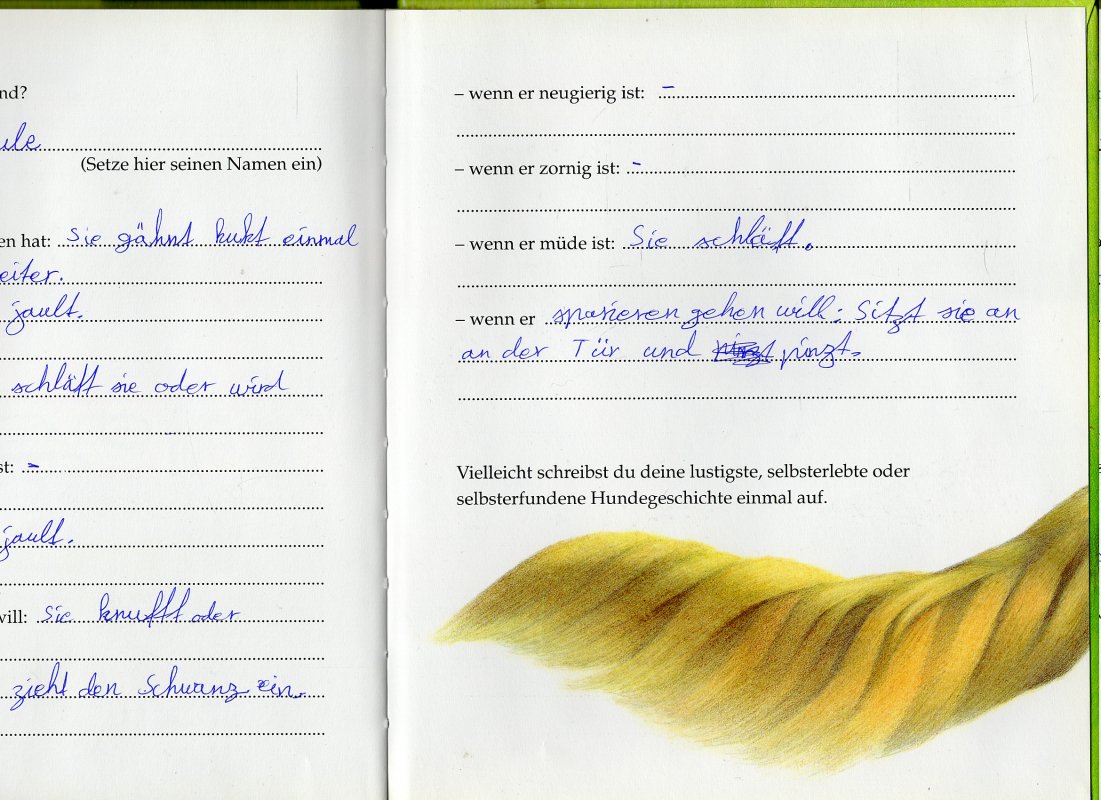 nd?
ule
(Setze hier seinen Namen ein)
en hat: Sie gähnt kukt einmal
eiter.
jault.
schläft sie oder wird
st: -
jault.
will: Sie knufft oder
zieht den Schwanz ein.
– wenn er neugierig ist: -
– wenn er zornig ist: -
– wenn er müde ist: Sie schläft.
– wenn er spazieren gehen will: Sitzt sie an
an der Tür und pinzt.
Vielleicht schreibst du deine lustigste, selbsterlebte oder
selbsterfundene Hundegeschichte einmal auf.